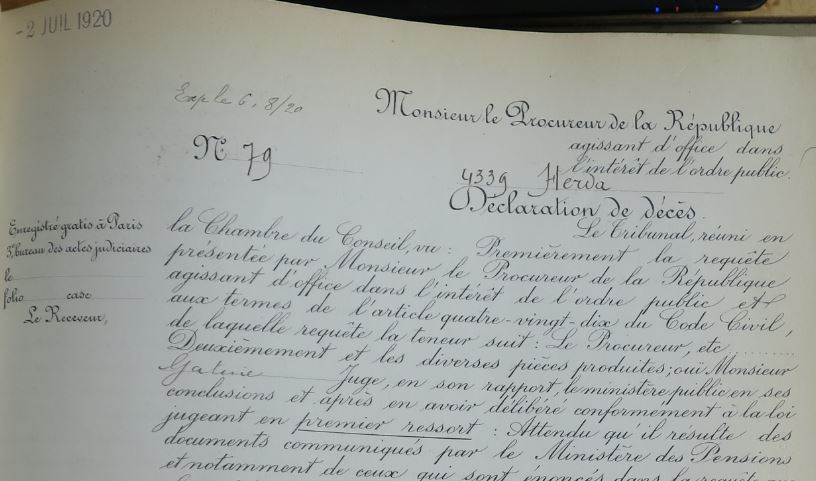 -2 JUIL 1920
Exp le 6. 8/20
Monsieur le Procureur de la République
agissant d'office dans
l'intérêt de l'ordre public.
N° 79
4339 Herda
Déclaration de décès.
Enregistré gratis à Paris
3e bureau des actes judiciaires
le
folio case
Le Receveur,
Le Tribunal, réuni en
la Chambre du Conseil, vu : Premièrement la requête
présentée par Monsieur le Procureur de la République
agissant d'office dans l'intérêt de l'ordre public et
aux termes de l'article quatre-vingt-dix du Code Civil,
de laquelle requête la teneur suit : Le Procureur, etc ........
Deuxièmement et les diverses pièces produites; ouï Monsieur
Juge, en son rapport, le ministère public en ses
conclusions et après en avoir délibéré conformément à la loi
jugeant en premier ressort : Attendu qu'il résulte des
documents communiqués par le Ministère des Pensions
et notamment de ceux qui sont énoncés dans la requête que